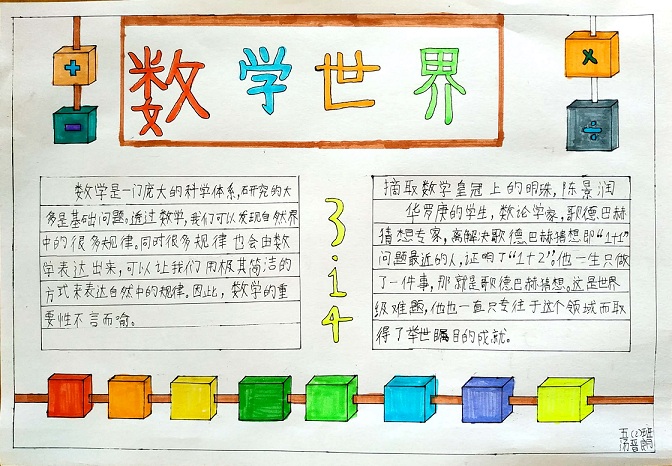 数学世界
+
×
-
÷
数学是一门庞大的科学体系,研究的大
多是基础问题。透过数学,我们可以发现自然界
中的很多规律。同时很多规律也会由数
学表达出来,可以让我们用极其简洁的
方式来表达自然中的规律。因此,数学的重
要性不言而喻。
3
i
4
摘取数学皇冠上的明珠,陈景润
华罗庚的学生,数论学家,歌德巴赫
猜想专家,离解决歌德巴赫猜想即“1+1”
问题最近的人,证明了“1+2”。他一生只做
了一件事,那就是歌德巴赫猜想。这是世界
级难题,他也一直只专注于这个领域而取
得了举世瞩目的成就。
五(2)班